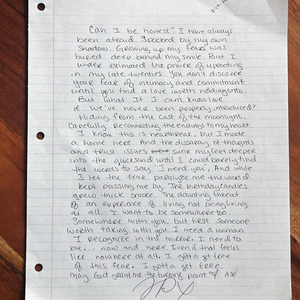 Can I be honest? I have always
been afraid. Spooked by my own
shadow. Growing up my fears was
buried deep behind my smile. But I
under estimated the power of uprooting
in my late twenties. You don't discover
your fear of intimacy and commitment
until you find a love worth holding onto.
But what if I can't know love
if we've never been properly introduced?
Hiding from the cast of the moonlight,
carefully reconnecting the endings to my heart
I know this is heartbreak, but I made
a home here. And the disarray of thoughts
and trust issues sent my feet deeper
into the quicksand until I could barely find
the words to say "I need you". And while
I let the fear paralyze me you
kept passing me by. The birthday candles
grew thick smoke. The daunting threat
of an experience of living not being living
at all. I want to be somewhere too.
Somewhere with you, but first someone
worth taking with you. I need a woman
I recognize in the mirror. I need to
be... now and here. Even if that feels
like nowhere at all. I gotta get free
of this fear. I gotta get free
may God grant me my turning point